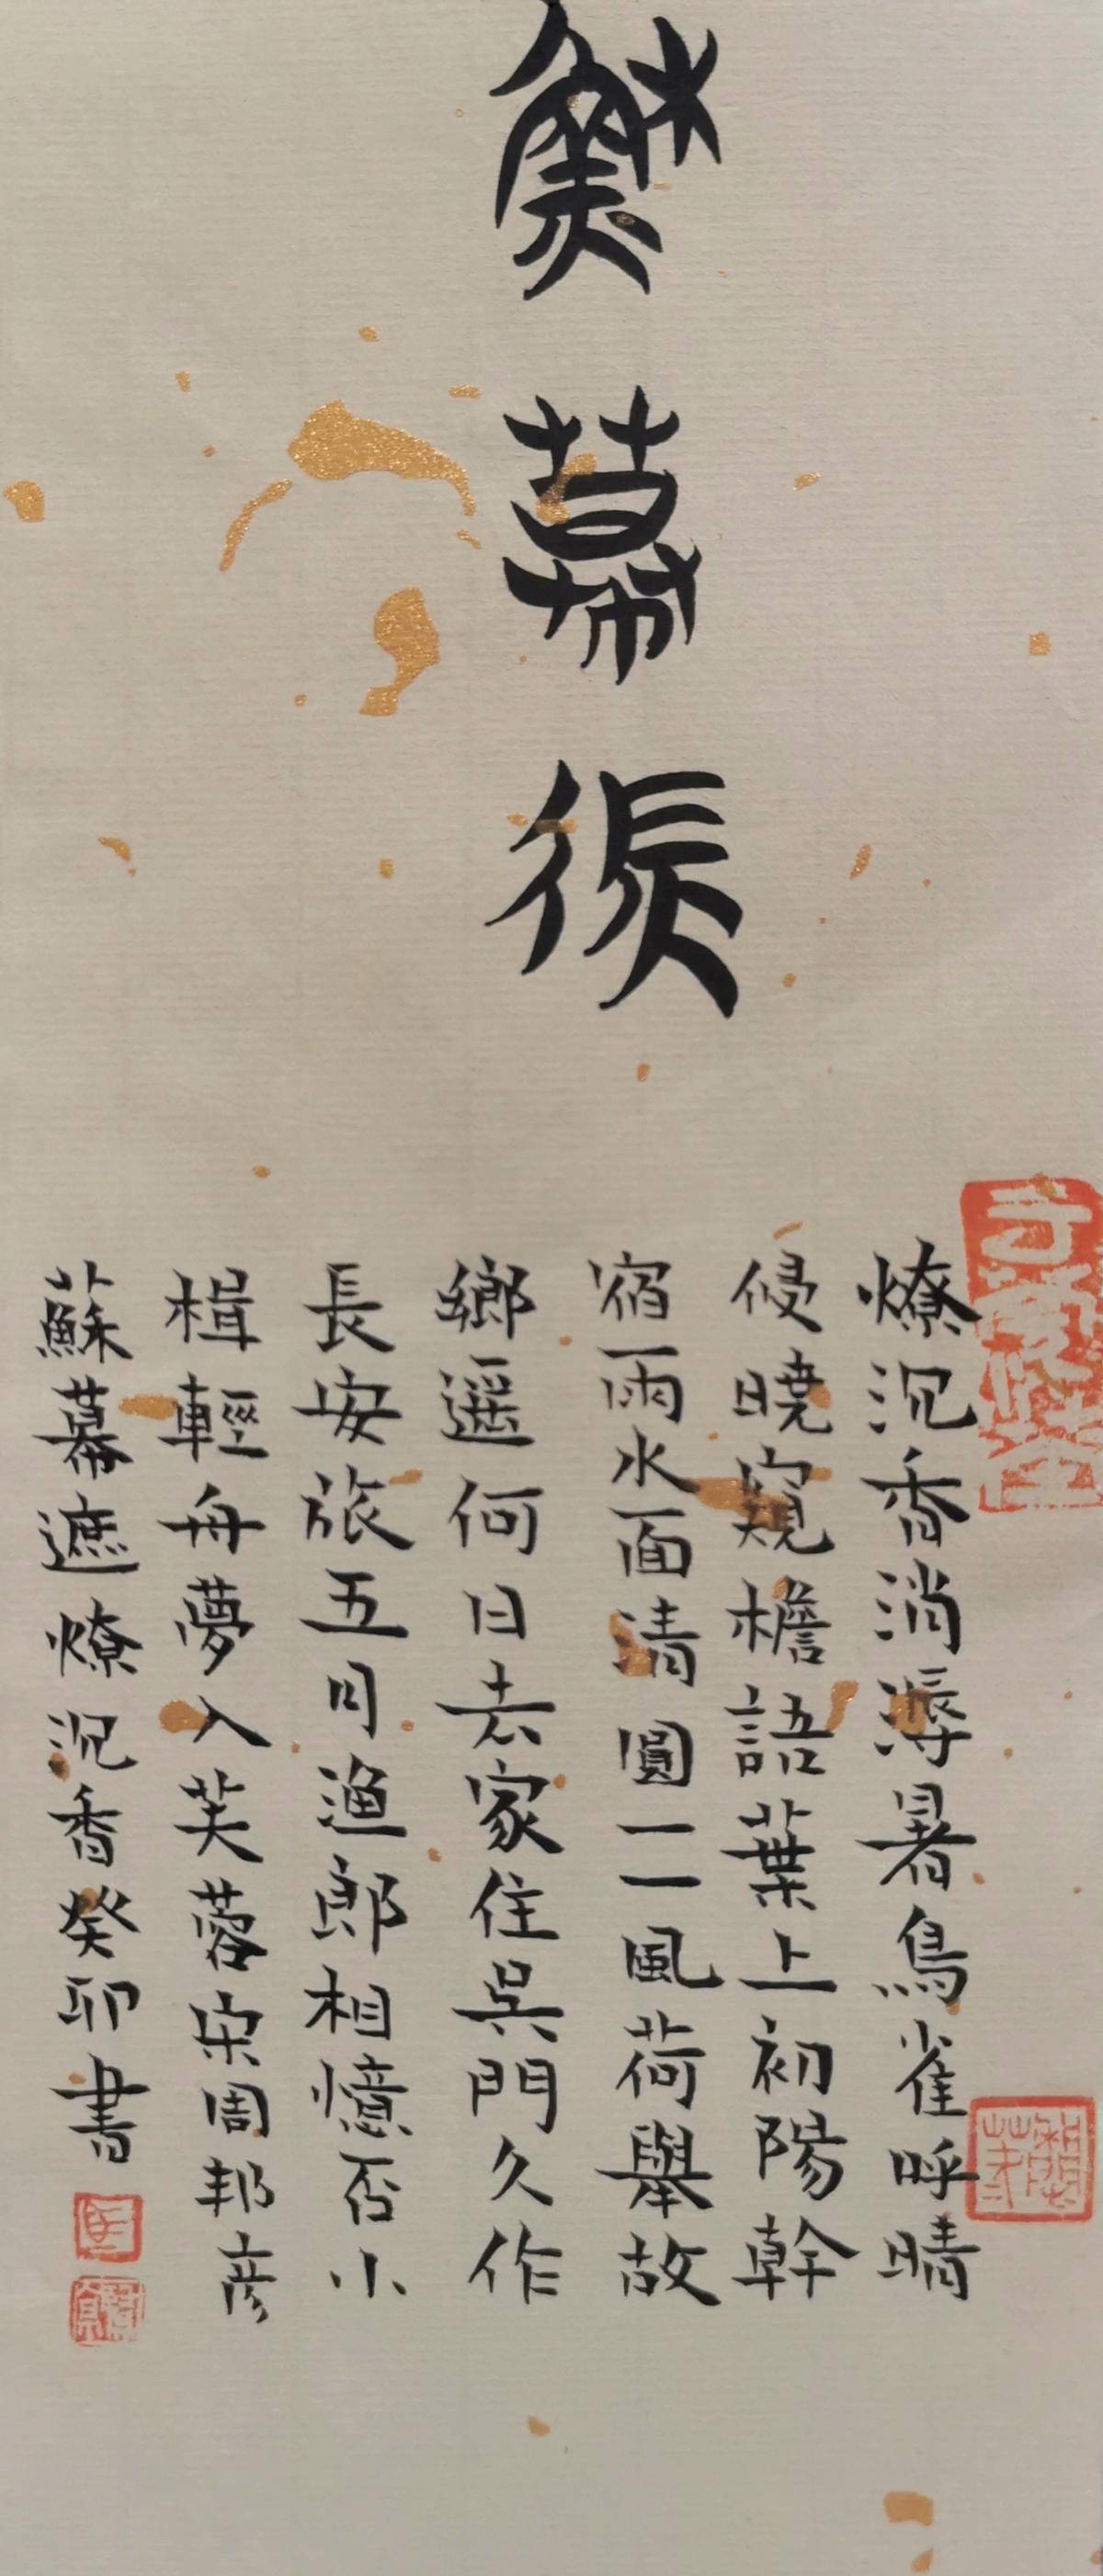 穌幕
燎沉香消溽暑鳥雀呼晴
侵曉窺檐語葉上初陽幹
宿雨水面清圓一一風荷舉故
鄉遥何日去家住吳門久作
長安旅五月漁郎相憶否小
楫輕舟夢入芙蓉宋周邦彥
蘇幕遮燎沉香癸卯書